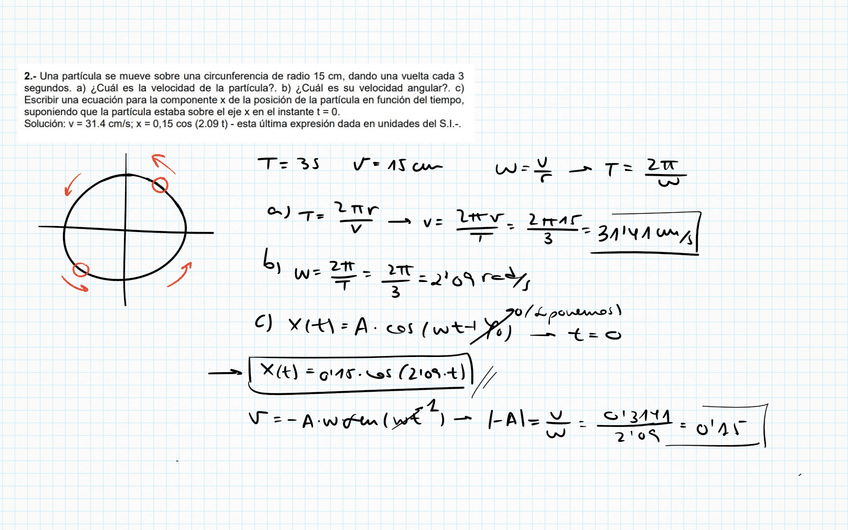 2.- Una partícula se mueve sobre una circunferencia de radio 15 cm, dando una vuelta cada 3
segundos. a) ¿Cuál es la velocidad de la partícula?. b) ¿Cuál es su velocidad angular?. c)
Escribir una ecuación para la componente x de la posición de la partícula en función del tiempo,
suponiendo que la partícula estaba sobre el eje x en el instante t = 0.
Solución: v = 31.4 cm/s; x = 0,15 cos (2.09 t) - esta última expresión dada en unidades del S.I.-.
T = 3s r = 15 cm ω = v/r → T = 2π/ω
a) T = 2πr/v → v = 2πr/T = 2π15/3 = 31'41 cm/s
b) ω = 2π/T = 2π/3 = 2'09 rad/s
c) X(t) = A · cos (ωt + φ0) → t = 0
→ X(t) = 0'15 · cos (2'09 · t)
v = -A · ω sen (ωt) 1 → |-A| = v/ω = 0'3141/2'09 = 0'15